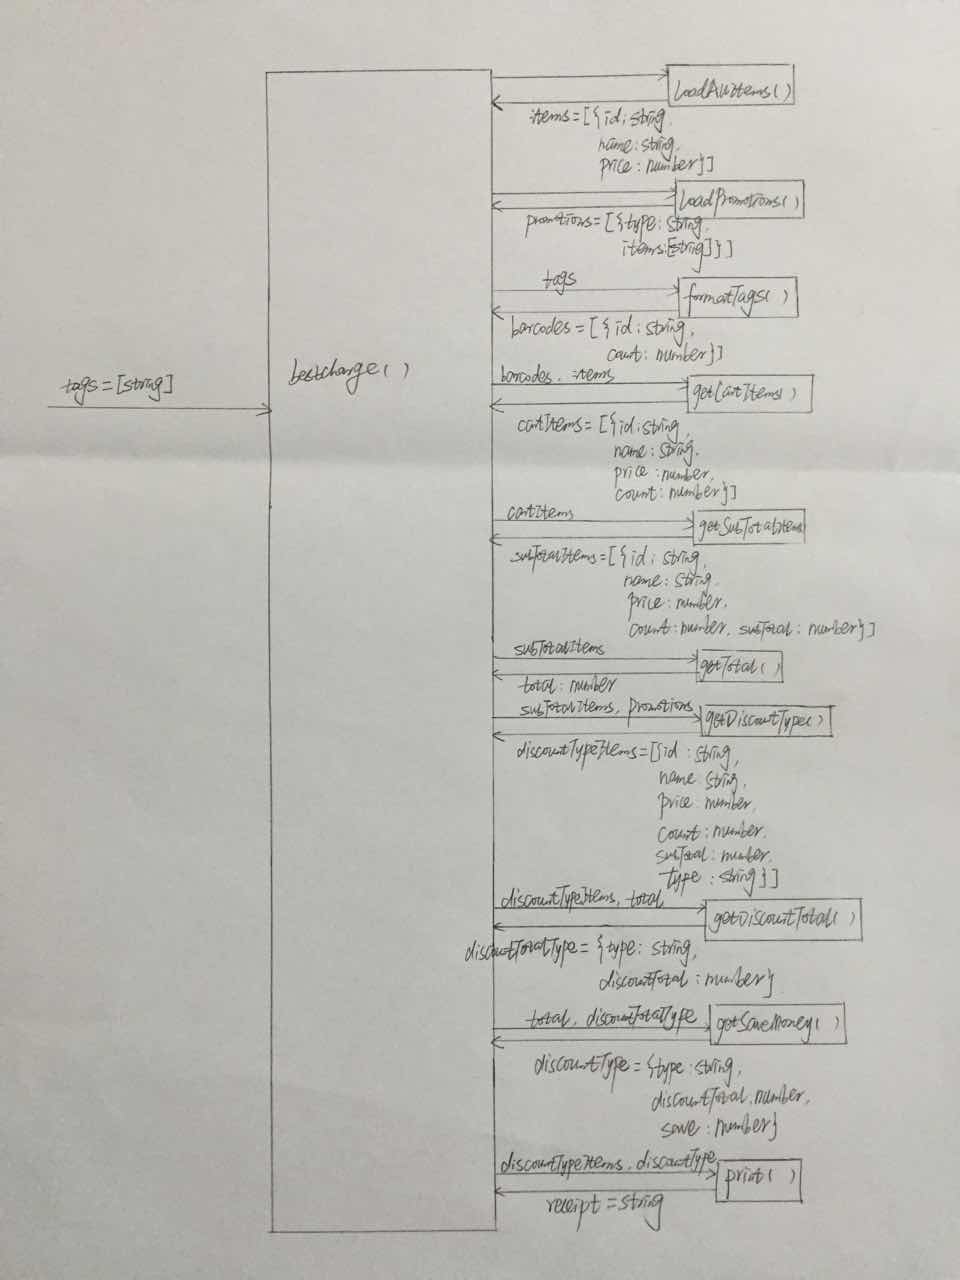 loadAllItems()
items=[{id:string,
name:string,
price:number}]
loadPromotions()
promotions=[{type:string,
items:[string]}]
tags
formatTags()
barcodes=[{id:string,
count:number}]
tags=[string]
bestcharge()
barcodes, items
getCartItems()
cartItems=[{id:string,
name:string,
price:number,
count:number}]
cartItems
getSubTotalItems
subTotalItems=[{id:string,
name:string,
price:number,
count:number, subTotal:number}]
subTotalItems
getTotal()
total:number
subTotalItems, promotions
getDiscountType()
discountTypeItems=[{id:string,
name string,
price number,
count:number,
subTotal:number,
type:string}]
discountTypeItems, total
getDiscountTotal()
discountTotalType={type:string,
discountTotal:number}
total, discountTotalType
getSaveMoney()
discountType={type:string,
discountTotal:number,
save:number}
discountTypeItems, discountType
print()
receipt=string